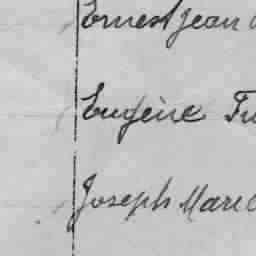 Ernest Jean
Eugène
Joseph Marie